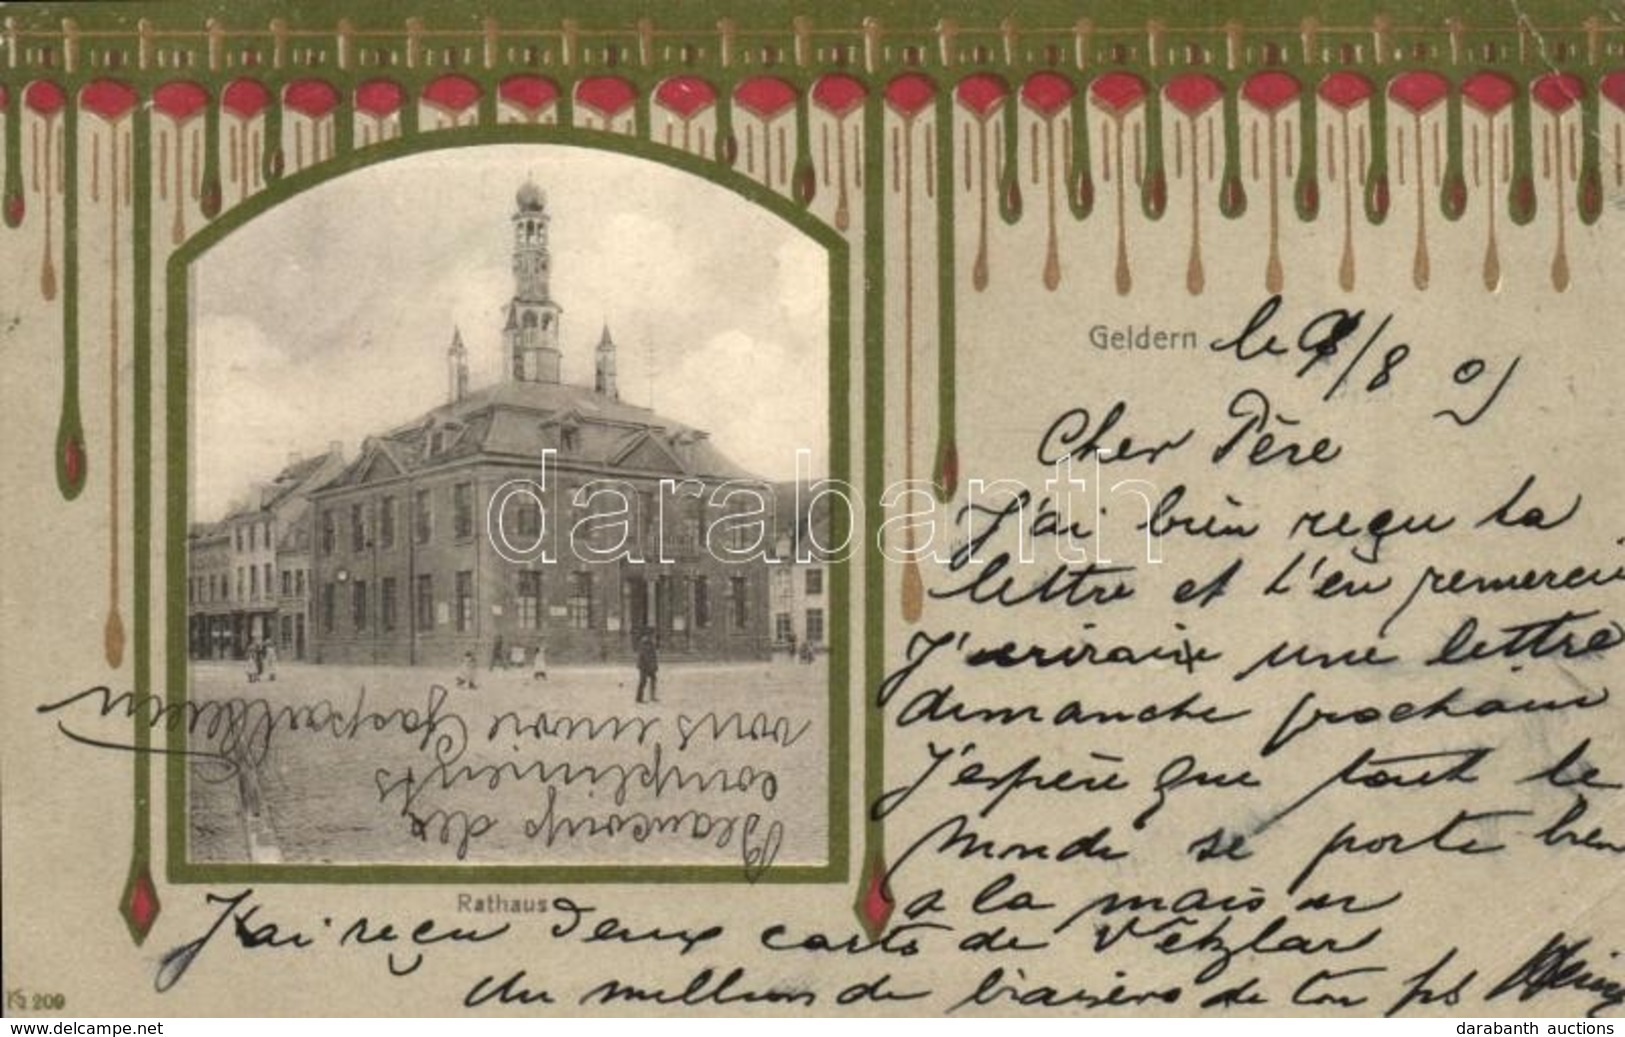 Geldern le 9/8 05
Cher Père
J'ai bien reçu ta
lettre et t'en remercie
J'ecriraie une lettre
dimanche prochain
J'espère que tout le
monde se porte bien
a la maison
Rathaus
J'ai reçu deux carts de Vetzlar
Un million de baisers de ton fils
Beaucoup des
compliments
vous envoie
209
darabanth
www.delcampe.net
darabanth auctions